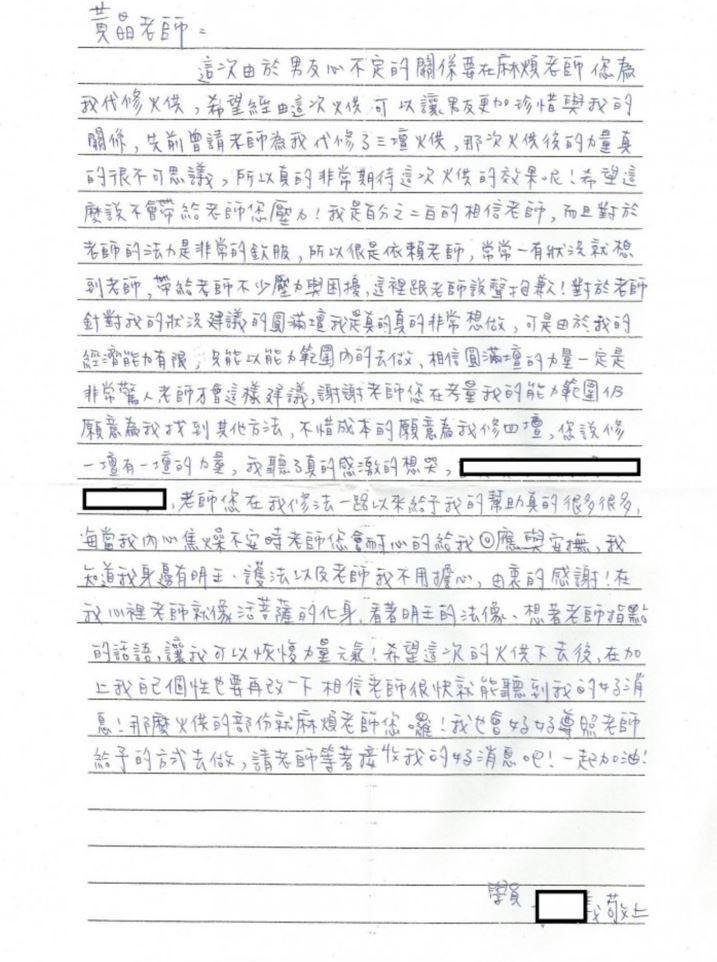 黃晶老師：
這次由於男友心不定的關係要在麻煩老師您為
我代修火供，希望經由這次火供可以讓男友更加珍惜與我的
關係，先前曾請老師為我代修了三壇火供，那次火供後的力量真
的很不可思議，所以真的非常期待這次火供的效果呢！希望這
麼說不會帶給老師您壓力！我是百分之二百的相信老師，而且對於
老師的法力是非常的欽服，所以很是依賴老師，常常一有狀況就想
到老師，帶給老師不少壓力與困擾，這裡跟老師說聲抱歉！對於老師
針對我的狀況建議的圓滿壇我是真的真的非常想做，可是由於我的
經濟能力有限，只能以能力範圍內的去做，相信圓滿壇的力量一定是
非常驚人老師才會這樣建議，謝謝老師您在考量我的能力範圍仍
願意為我找到其他方法，不惜成本的願意為我修四壇，您說修
一壇有一壇的力量，我聽了真的感激的想哭，
，老師您在我修法一路以來給予我的幫助真的很多很多，
每當我內心焦燥不安時老師您會耐心的給我回應與安撫，我
知道我身邊有明王、護法以及老師我不用擔心，由衷的感謝！在
我心裡老師就像活菩薩的化身，看著明王的法像、想著老師指點
的話語，讓我可以恢復力量元氣！希望這次的火供下去後，在加
上我自己個性也要再改一下相信老師很快就能聽到我的好消
息！那麼火供的部份就麻煩老師您囉！我也會好好遵照老師
給予的方式去做，請老師等著接收我的好消息吧！一起加油！
學員
敬上